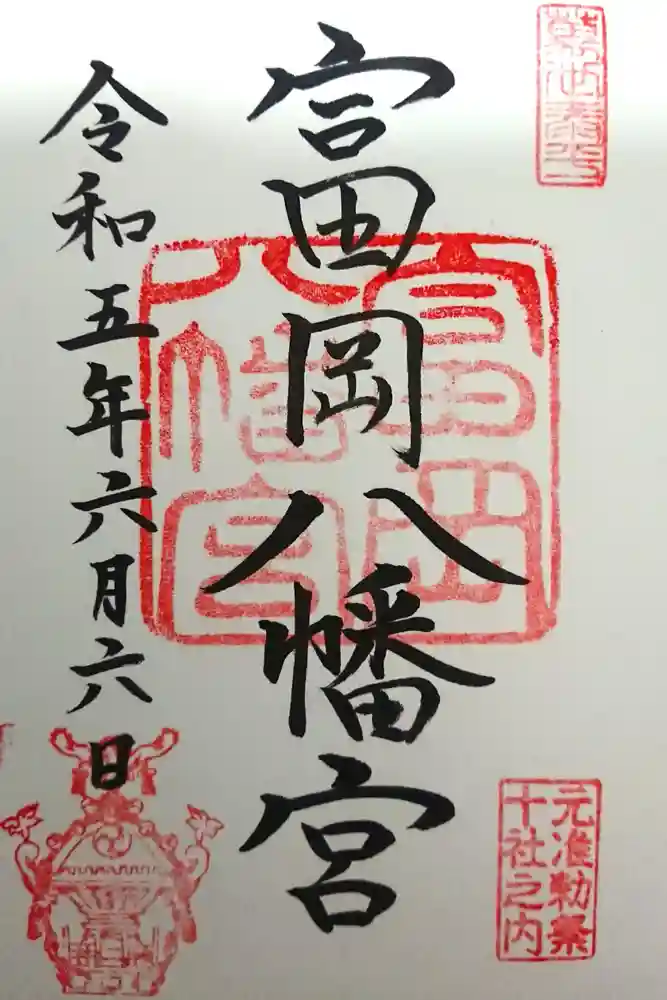 元准勅祭
十社之内
富岡八幡宮
富岡
八幡宮
令和五年六月六日